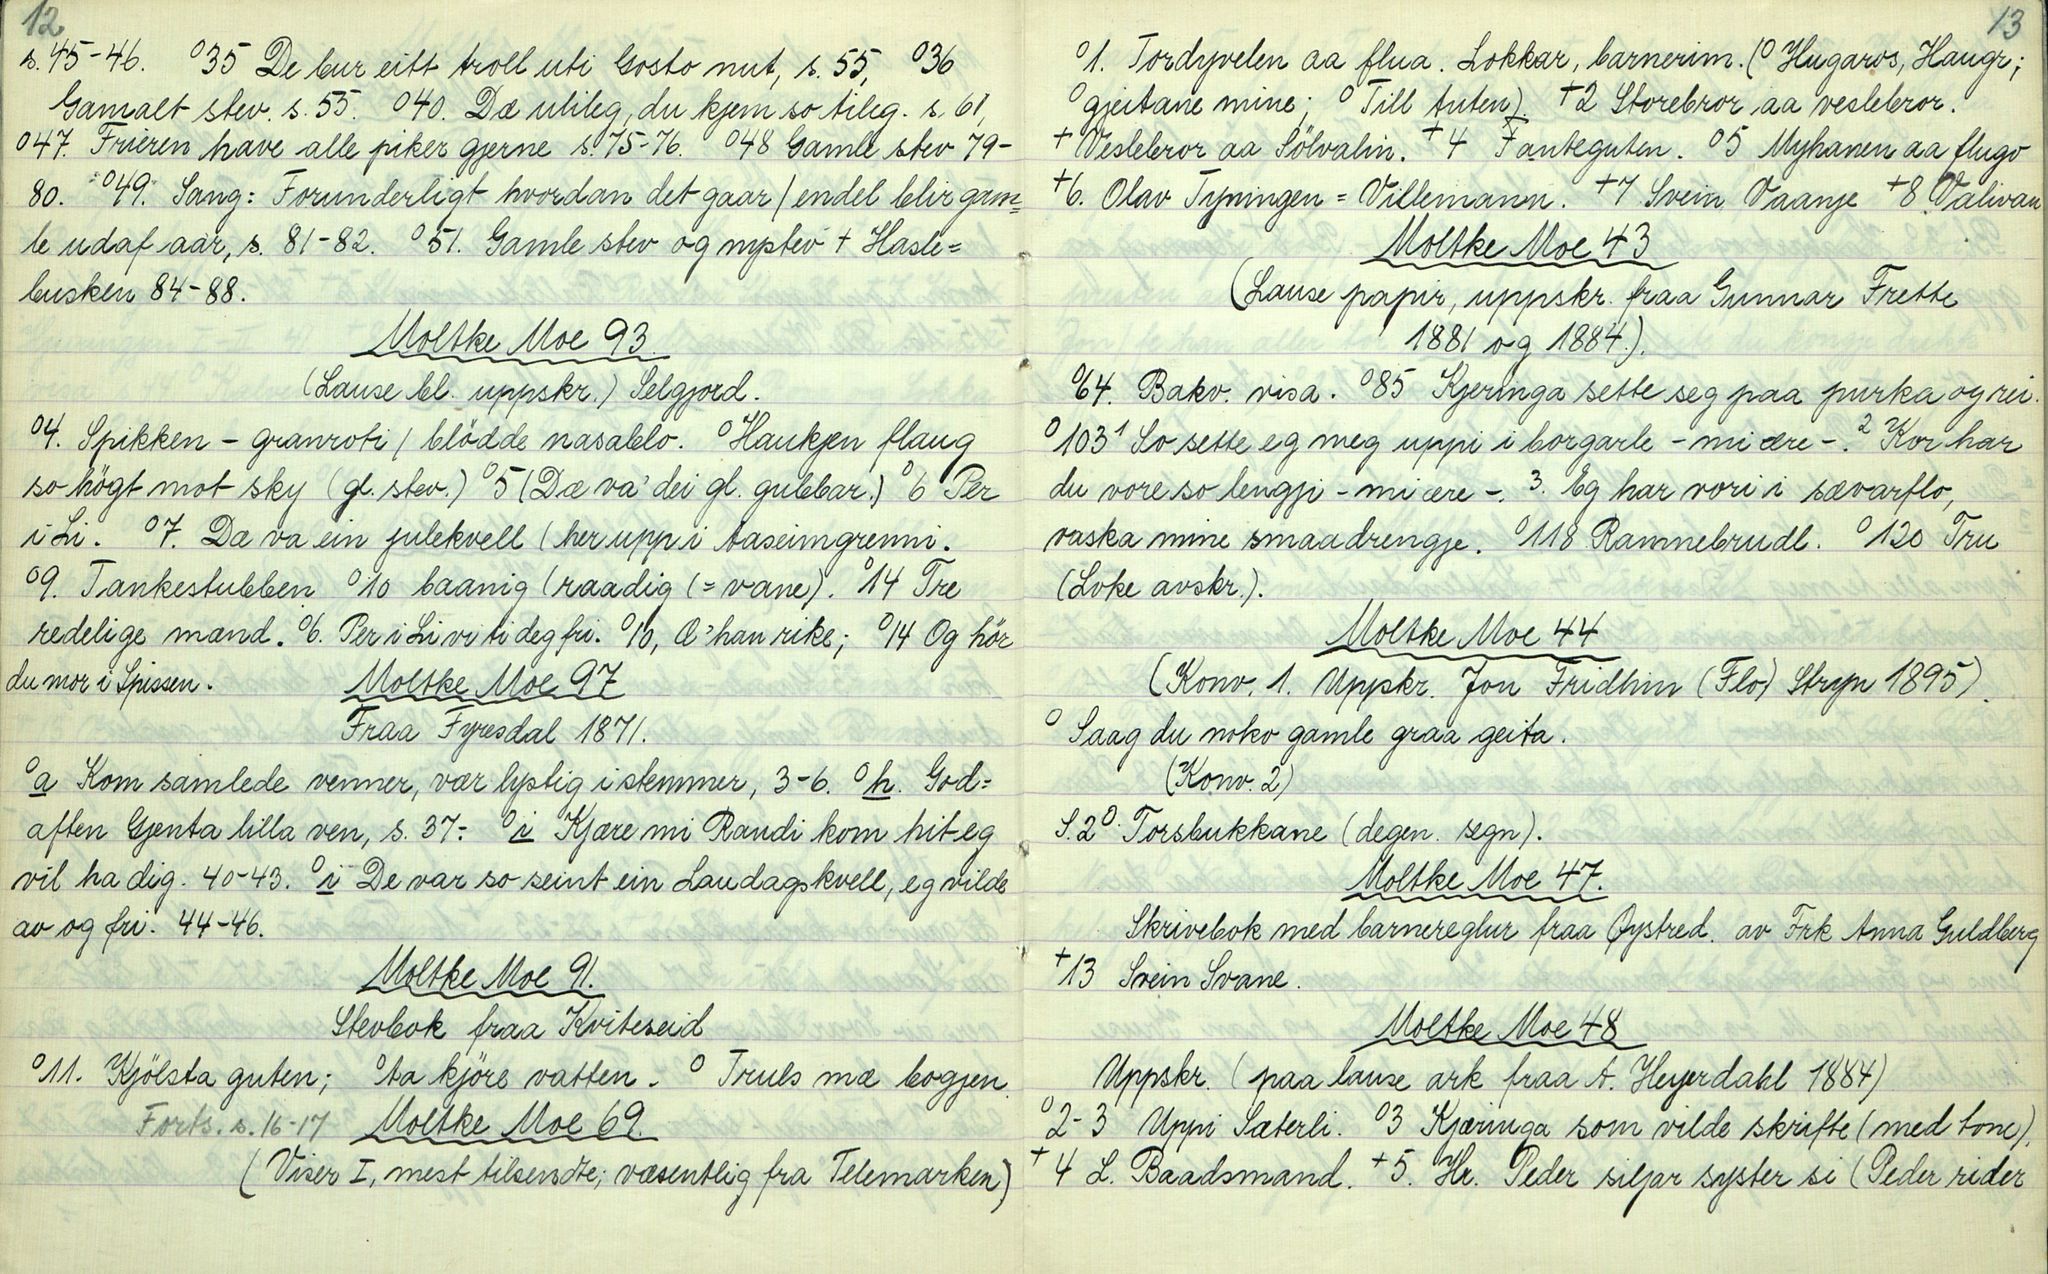 12
s. 45-46. º35 De bur eitt troll uti Gosto nut, s. 55, º36
Gamalt stev. s. 55. º40. Dæ ulileg, du kjem so tileg. s. 61,
º47. Frieren have alle piker gjerne s. 75-76. º48 Gamle stev 79-
80. º49. Sang: Forunderligt hvordan det gaar / endel blir gam=
le udaf aar, s. 81-82. º51. Gamle stev og nystev + Hasle=
busken 84-88.
Moltke Moe 93.
(Lause bl. uppskr.) Selgjord.
º4. Spikken - granroti / blödde nasablo. º Haukjen flaug
so högt mot sky (gl. stev.) º5 (Dæ va' dei gl. gubbar.) º6 Per
i Li. º7. Dæ va ein julekvell (her uppi Aaseimgrenni.
º9. Tankestubben º10 baanig (raadig (= vane). º14 Tre
redelige mænd. º6. Per i Li vi ti deg fri. º10, Æ' han rike; º14 Og hör
du mor i Spissen.
Moltke Moe 97
Fraa Fyresdal 1871.
º a Kom samlede venner, vær lystig i stemmer, 3-6. º h. God=
aften Gjenta lilla ven, s. 37- º i Kjære mi Randi kom hit eg
vil ha dig. 40-43. º i De var so seint ein Laudagskvell, eg vilde
av og fri. 44-46.
Moltke Moe 91.
Stevbok fraa Kviteseid
º11. Kjölsta guten; º ta kjöre vatten. º Truls mæ bogjen.
Forts. s. 16-17
Moltke Moe 69.
(Viser I, mest tilsendte; væsentlig fra Telemarken)
13
º1. Tordyvelen aa flua. Lokkar, barnerim. (º Hugaros, Haugr;
º gjeitane mine; º Till tuten) +2 Storebror aa veslebror.
+ Veslebror aa Sölvalin. +4 Fanteguten. º5 Myhanen aa flugo
+6. Olav Tyningen = Villemann. +7 Svein Vaanje +8 Valivan
Moltke Moe 43
(Lause papir, uppskr. fraa Gunnar Frette
1881 og 1884.).
º64. Bakv. visa. º85 Kjeringa sette seg paa purka og rei.
º103 ¹ So sette eg meg uppi i borgarle - mi ære -. ² Kor har
du vore so lengji - mi ære -. 3. Eg har vori i sævarflo,
vaska mine smaadrengje. º118 Ramnebrudl. º120 Tru
(Loke avskr.).
Moltke Moe 44
(Konv. 1. Uppskr. Jon Fridhin (Flo) Stryn 1895).
º Saag du noko gamle graa geita.
(Konv. 2)
S. 2º. Torsbukkane (degen. segn).
Moltke Moe 47.
Skrivebok med barnereglur fraa Øystred. av Frk Anna Guldberg
+13 Svein Svane.
Moltke Moe 48
Uppskr. (paa lause ark fraa A. Heyerdahl 1884)
º2-3 Uppi Sæterli. º3 Kjæringa som vilde skrifte (med tone),
+4 L. Baadsmand. +5. Hr. Peder siljar syster si (Peder rider